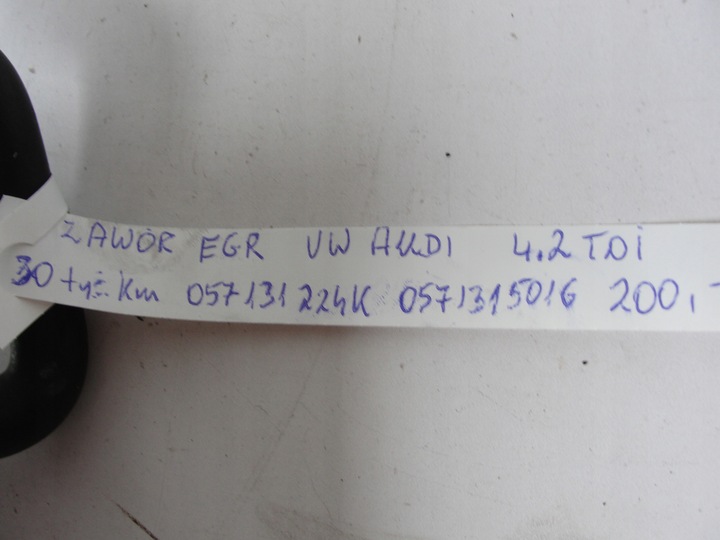 ZAWÓR EGR VW AUDI 4.2 TDI
30 tyś. km 057131224K 057131501G 200,-